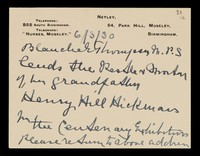 TELEPHONE:
888 SOUTH BIRMINGHAM.
TELEGRAMS:
"NURSES, MOSELEY."
NETLEY,
54, PARK HILL, MOSELEY,
BIRMINGHAM.
6/3/30
Blanche Thompson
lends the
of her grandfather
Henry Hill Hickman
for the Centenary Exhibition
Please return to above address